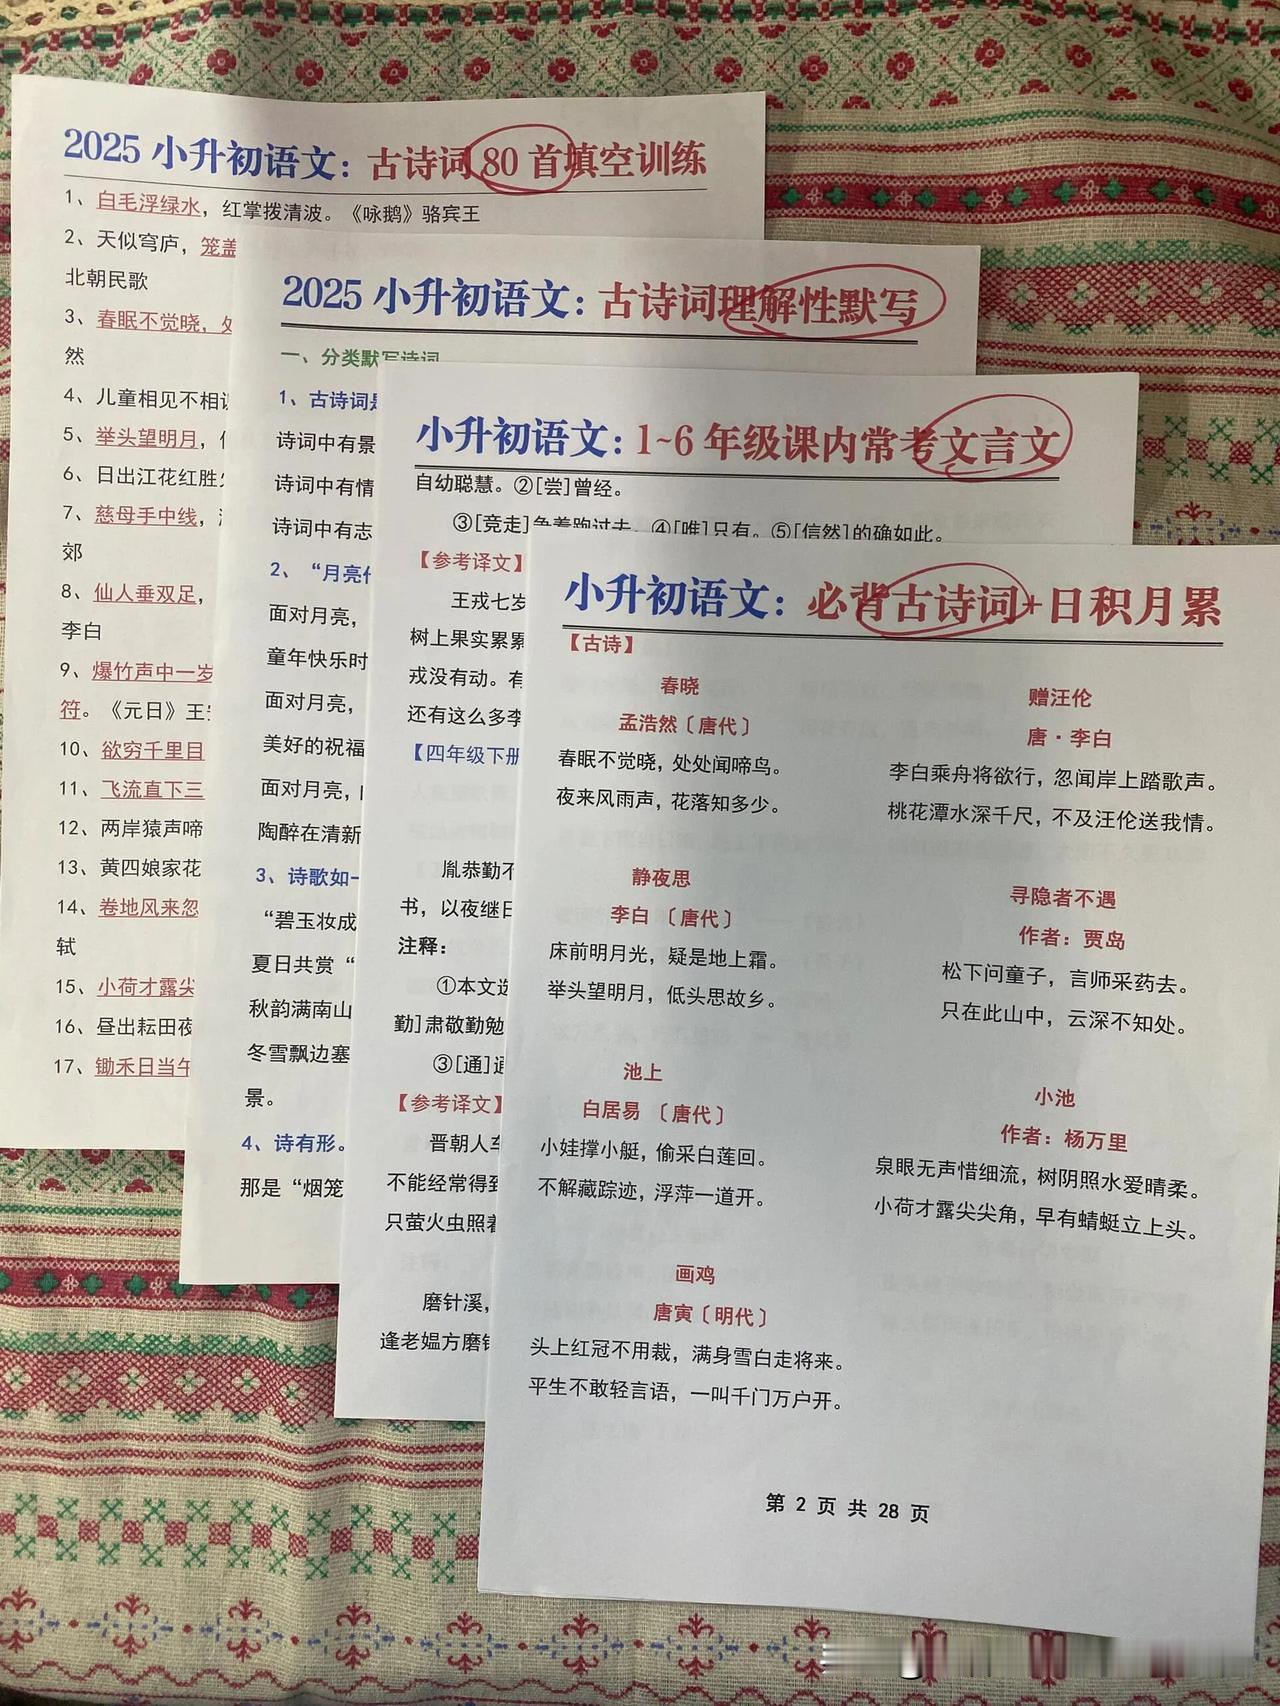 2025 小升初语文：古诗词 80 首填空训练
1、白毛浮绿水，红掌拨清波。《咏鹅》骆宾王
2、天似穹庐，笼盖
北朝民歌
3、春眠不觉晓，处
然
4、儿童相见不相识
5、举头望明月，
6、日出江花红胜火
7、慈母手中线，
郊
8、仙人垂双足，
李白
9、爆竹声中一岁
符。《元日》王安
10、欲穷千里目
11、飞流直下三
12、两岸猿声啼
13、黄四娘家花
14、卷地风来忽
轼
15、小荷才露尖
16、昼出耘田夜
17、锄禾日当午
2025 小升初语文：古诗词理解性默写
一、分类默写诗词
1、古诗词是
诗词中有景
诗词中有情
诗词中有志
2、“月亮代
面对月亮，
童年快乐时
面对月亮，
美好的祝福
面对月亮，
陶醉在清新
3、诗歌如一
“碧玉妆成
夏日共赏“
秋韵满南山
冬雪飘边塞
景。
4、诗有形。
那是“烟笼
小升初语文：1~6 年级课内常考文言文
自幼聪慧。②[尝]曾经。
③[竞走]争着跑过去。④[唯]只有。⑤[信然]的确如此。
【参考译文】
王戎七岁
树上果实累累
戎没有动。有
还有这么多李
【四年级下册
胤恭勤不
书，以夜继日
注释：
①本文选
勤]肃敬勤勉
③[通]通
【参考译文】
晋朝人车
不能经常得到
只萤火虫照着
磨针溪，
逢老媪方磨针
小升初语文：必背古诗词+日积月累
【古诗】
春晓
孟浩然〔唐代〕
春眠不觉晓，处处闻啼鸟。
夜来风雨声，花落知多少。
静夜思
李白〔唐代〕
床前明月光，疑是地上霜。
举头望明月，低头思故乡。
池上
白居易〔唐代〕
小娃撑小艇，偷采白莲回。
不解藏踪迹，浮萍一道开。
画鸡
唐寅〔明代〕
头上红冠不用裁，满身雪白走将来。
平生不敢轻言语，一叫千门万户开。
赠汪伦
唐·李白
李白乘舟将欲行，忽闻岸上踏歌声。
桃花潭水深千尺，不及汪伦送我情。
寻隐者不遇
作者：贾岛
松下问童子，言师采药去。
只在此山中，云深不知处。
小池
作者：杨万里
泉眼无声惜细流，树阴照水爱晴柔。
小荷才露尖尖角，早有蜻蜓立上头。
第 2 页 共 28 页